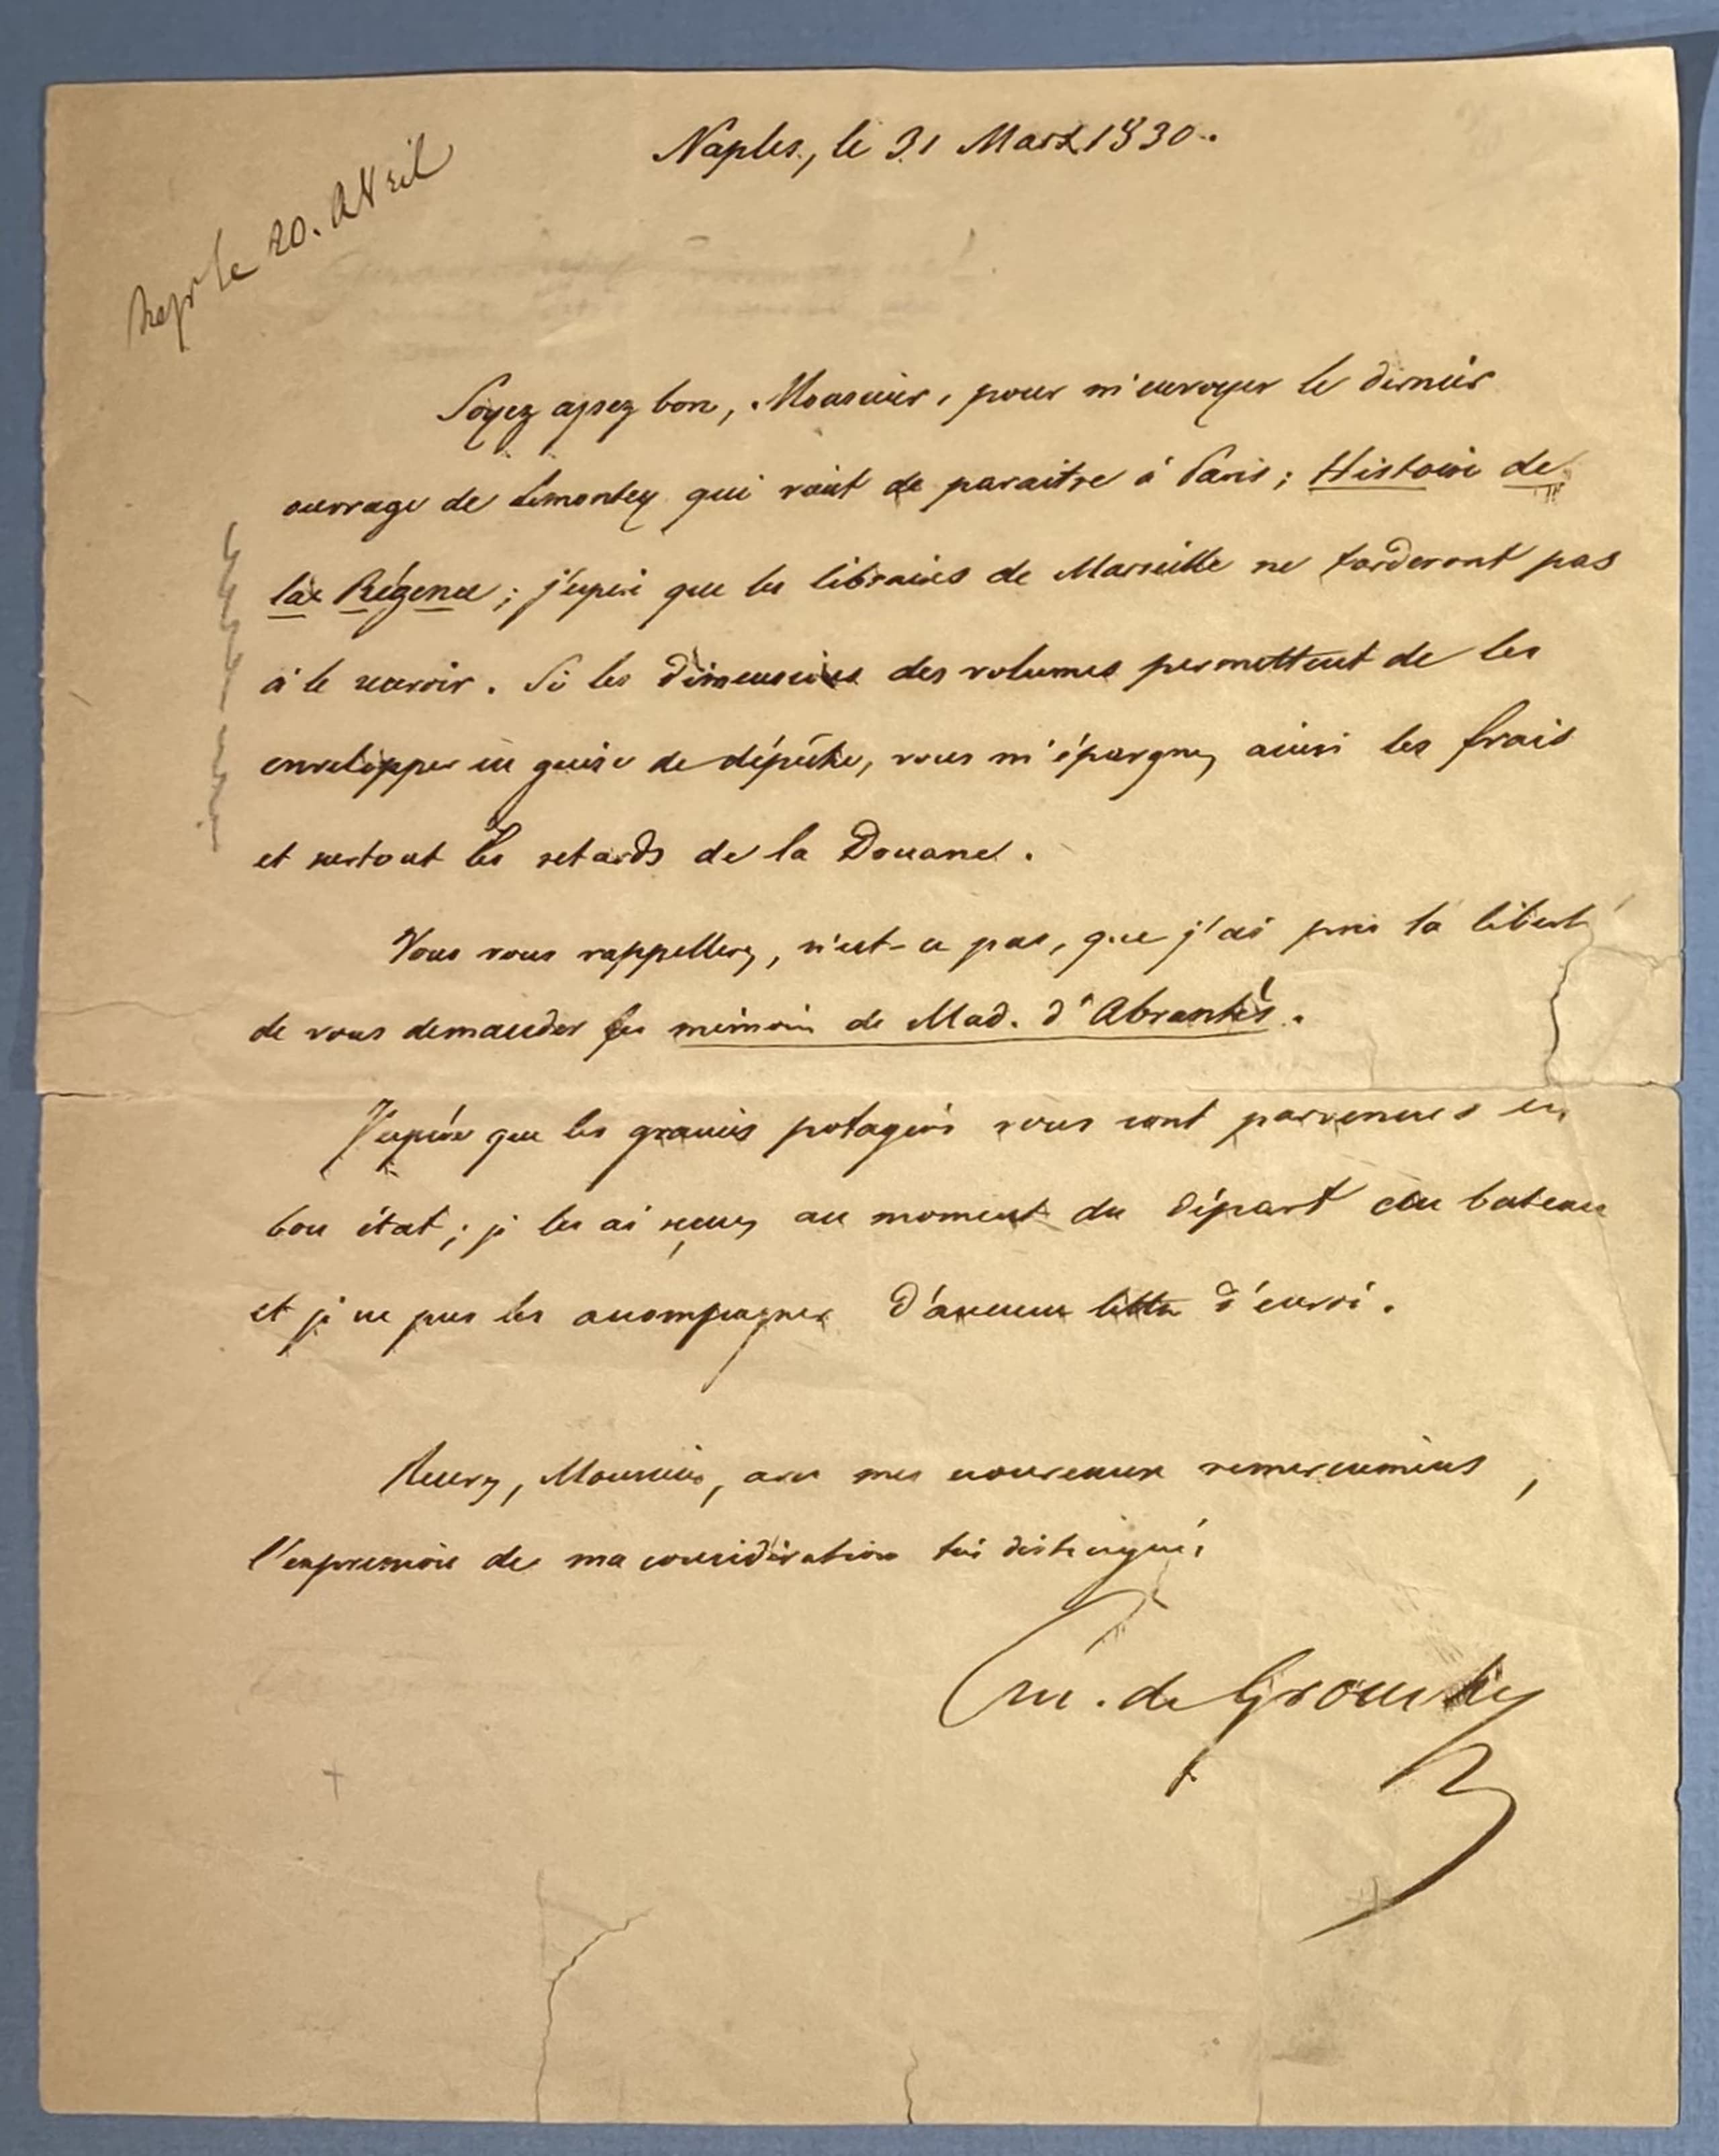 Naples, le 31 Mars 1830.
Repe le 20. Avril
Soyez assez bon, Monsieur, pour m'envoyer le dernier
ouvrage de Lemontey qui vient de paraitre à Paris; Histoire de
la Régence; j'espère que les libraires de Marseille ne tarderont pas
à le recevoir. Si les dimensions des volumes permettent de les
envelopper en guise de dépêche, vous m'épargnez ainsi les frais
et surtout les retards de la Douane.
Vous vous rappellerez, n'est-ce pas, que j'ai pris la liberté
de vous demander les mémoires de Mad. d'Abrantès.
J'espère que les graines potagères vous sont parvenues en
bon état; je les ai reçues au moment du départ du bateau
et je ne pus les accompagner d'aucune lettre d'envoi.
Recevez, Monsieur, avec mes nouveaux remerciemens,
l'expression de ma considération très distinguée
de Grouchy